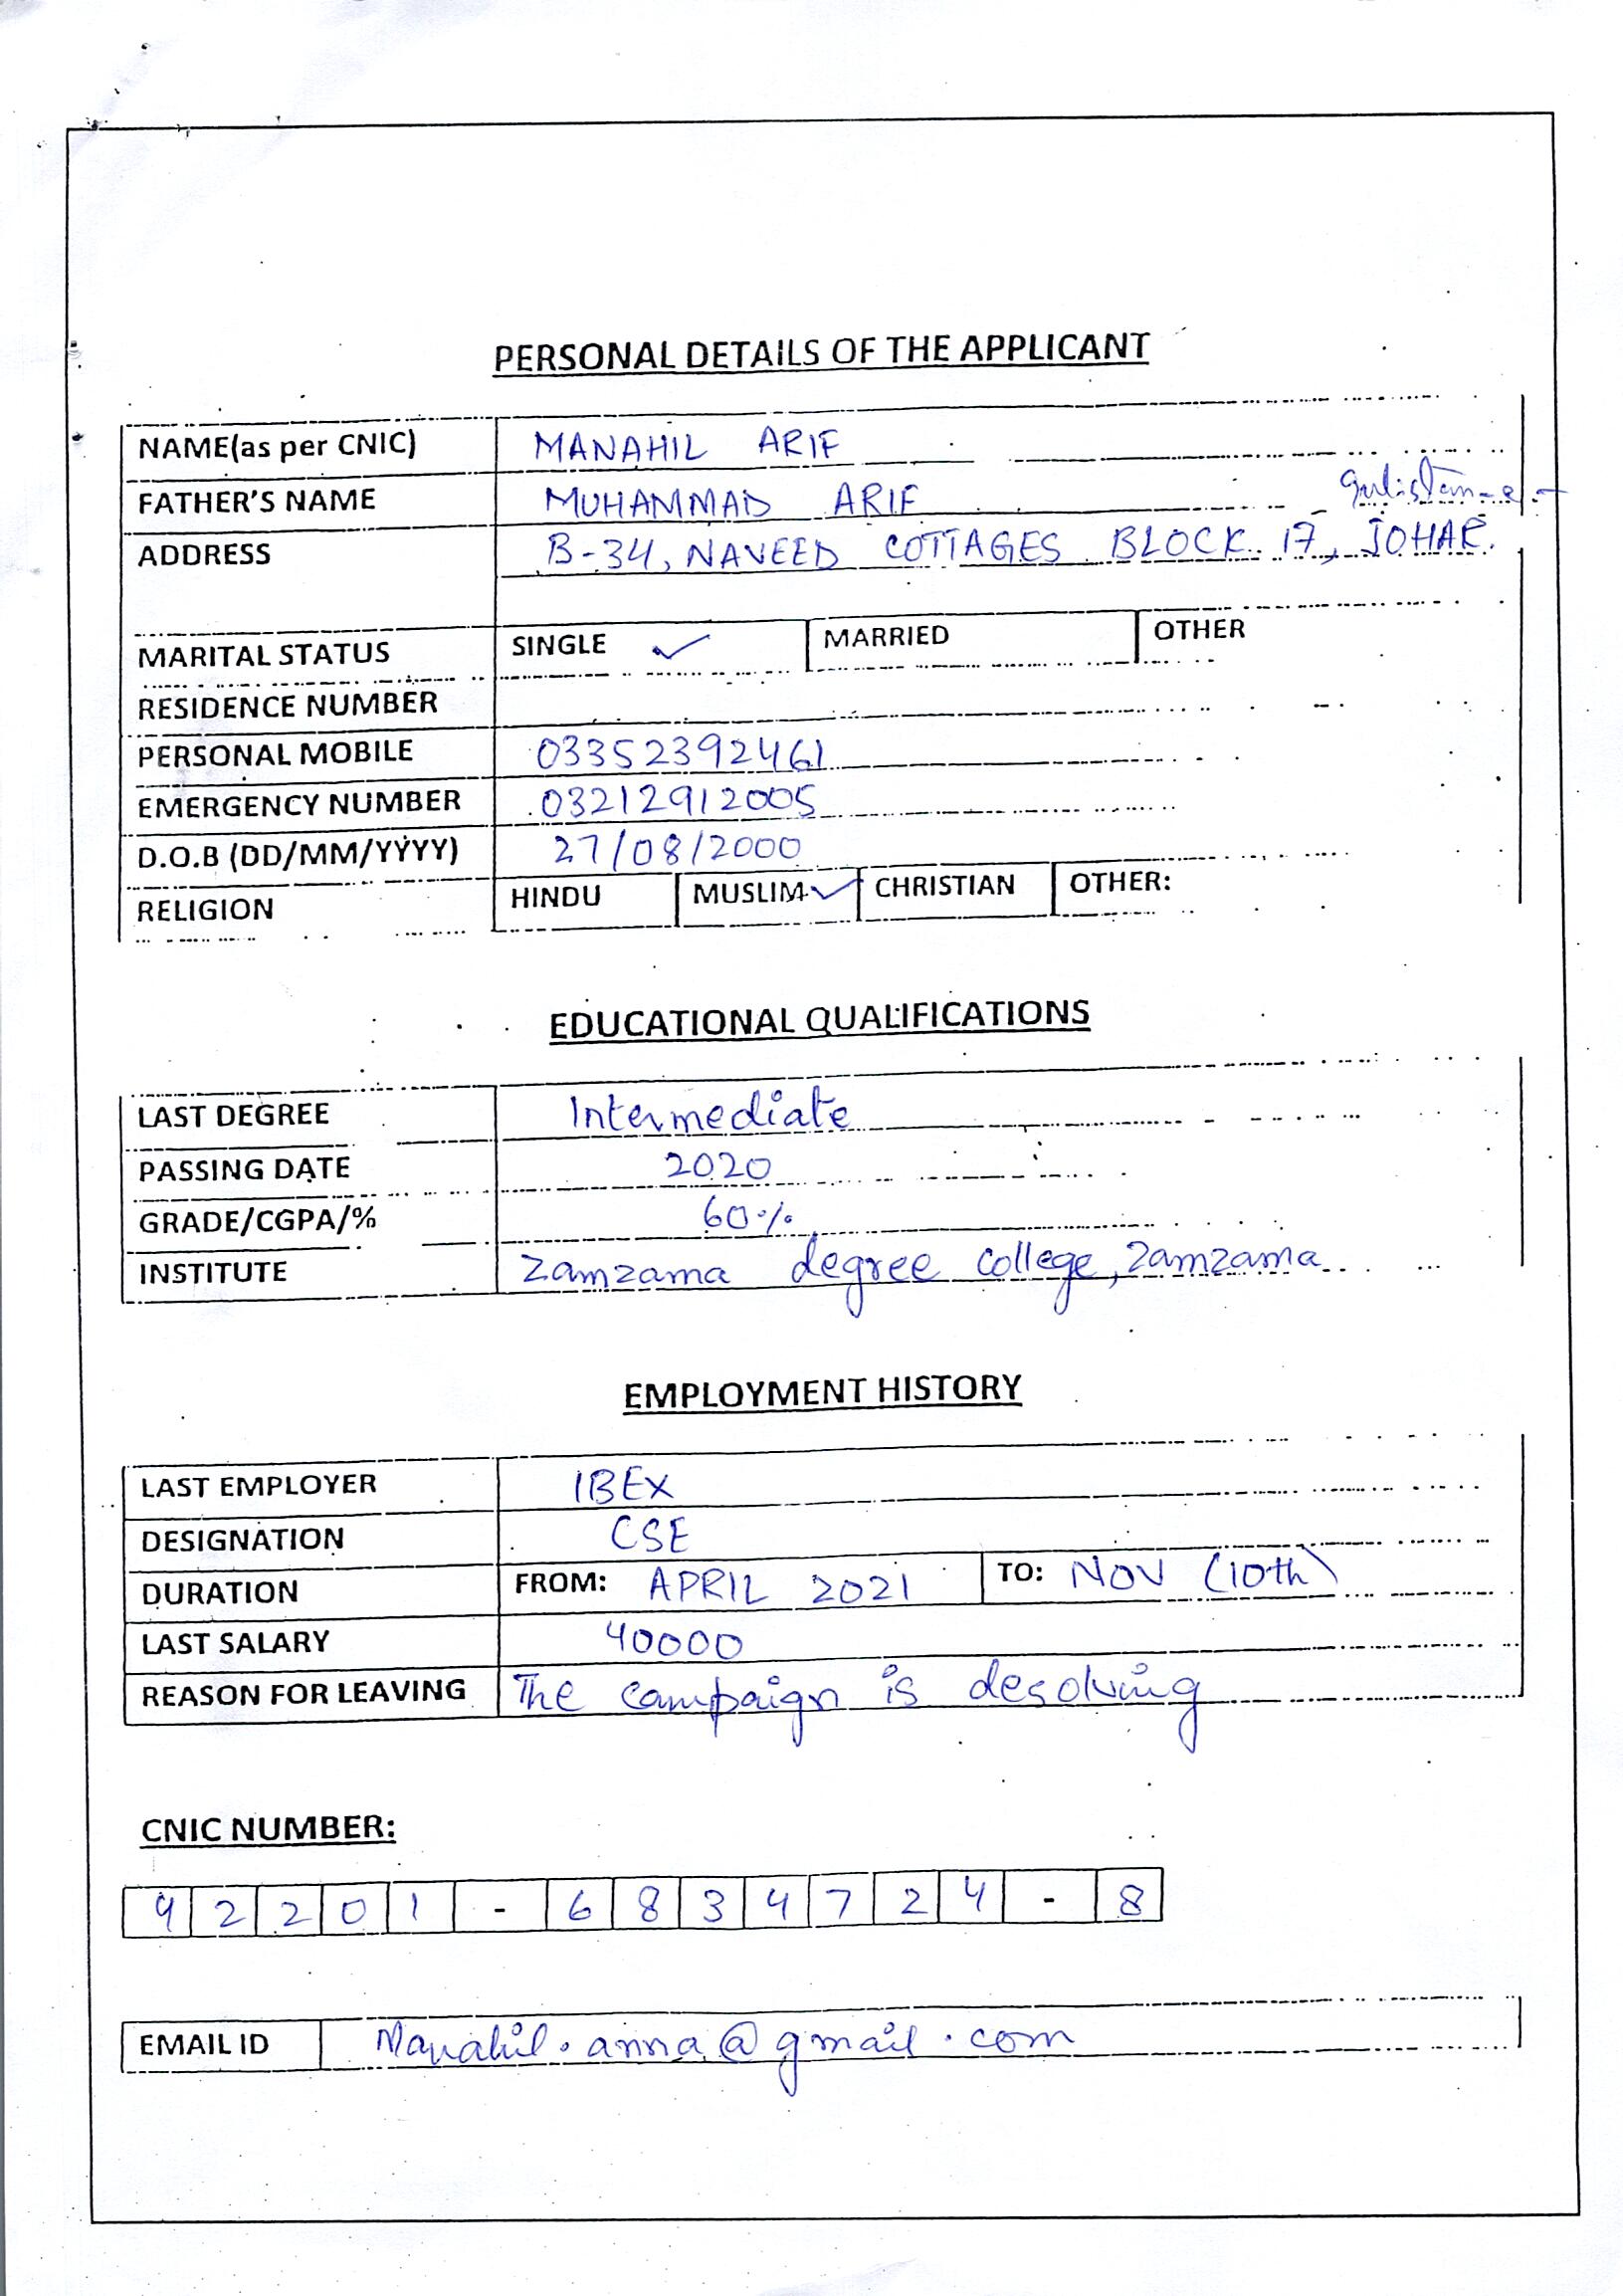 PERSONAL DETAILS OF THE APPLICANT
NAME(as per CNIC) MANAHIL ARIF
FATHER'S NAME MUHAMMAD ARIF
gulistan-e-
ADDRESS B-34, NAVEED COTTAGES BLOCK 17, JOHAR.
MARITAL STATUS SINGLE ✓ MARRIED OTHER
RESIDENCE NUMBER
PERSONAL MOBILE 03352392461
EMERGENCY NUMBER 03212912005
D.O.B (DD/MM/YYYY) 27/08/2000
RELIGION HINDU MUSLIM ✓ CHRISTIAN OTHER:
EDUCATIONAL QUALIFICATIONS
LAST DEGREE Intermediate
PASSING DATE 2020
GRADE/CGPA/% 60%
INSTITUTE Zamzama degree college, Zamzama
EMPLOYMENT HISTORY
LAST EMPLOYER IBEX
DESIGNATION CSE
DURATION FROM: APRIL 2021 TO: NOV (10th)
LAST SALARY 40000
REASON FOR LEAVING The campaign is desolving
CNIC NUMBER:
42201-6834724-8
EMAIL ID Manahil.anna@gmail.com